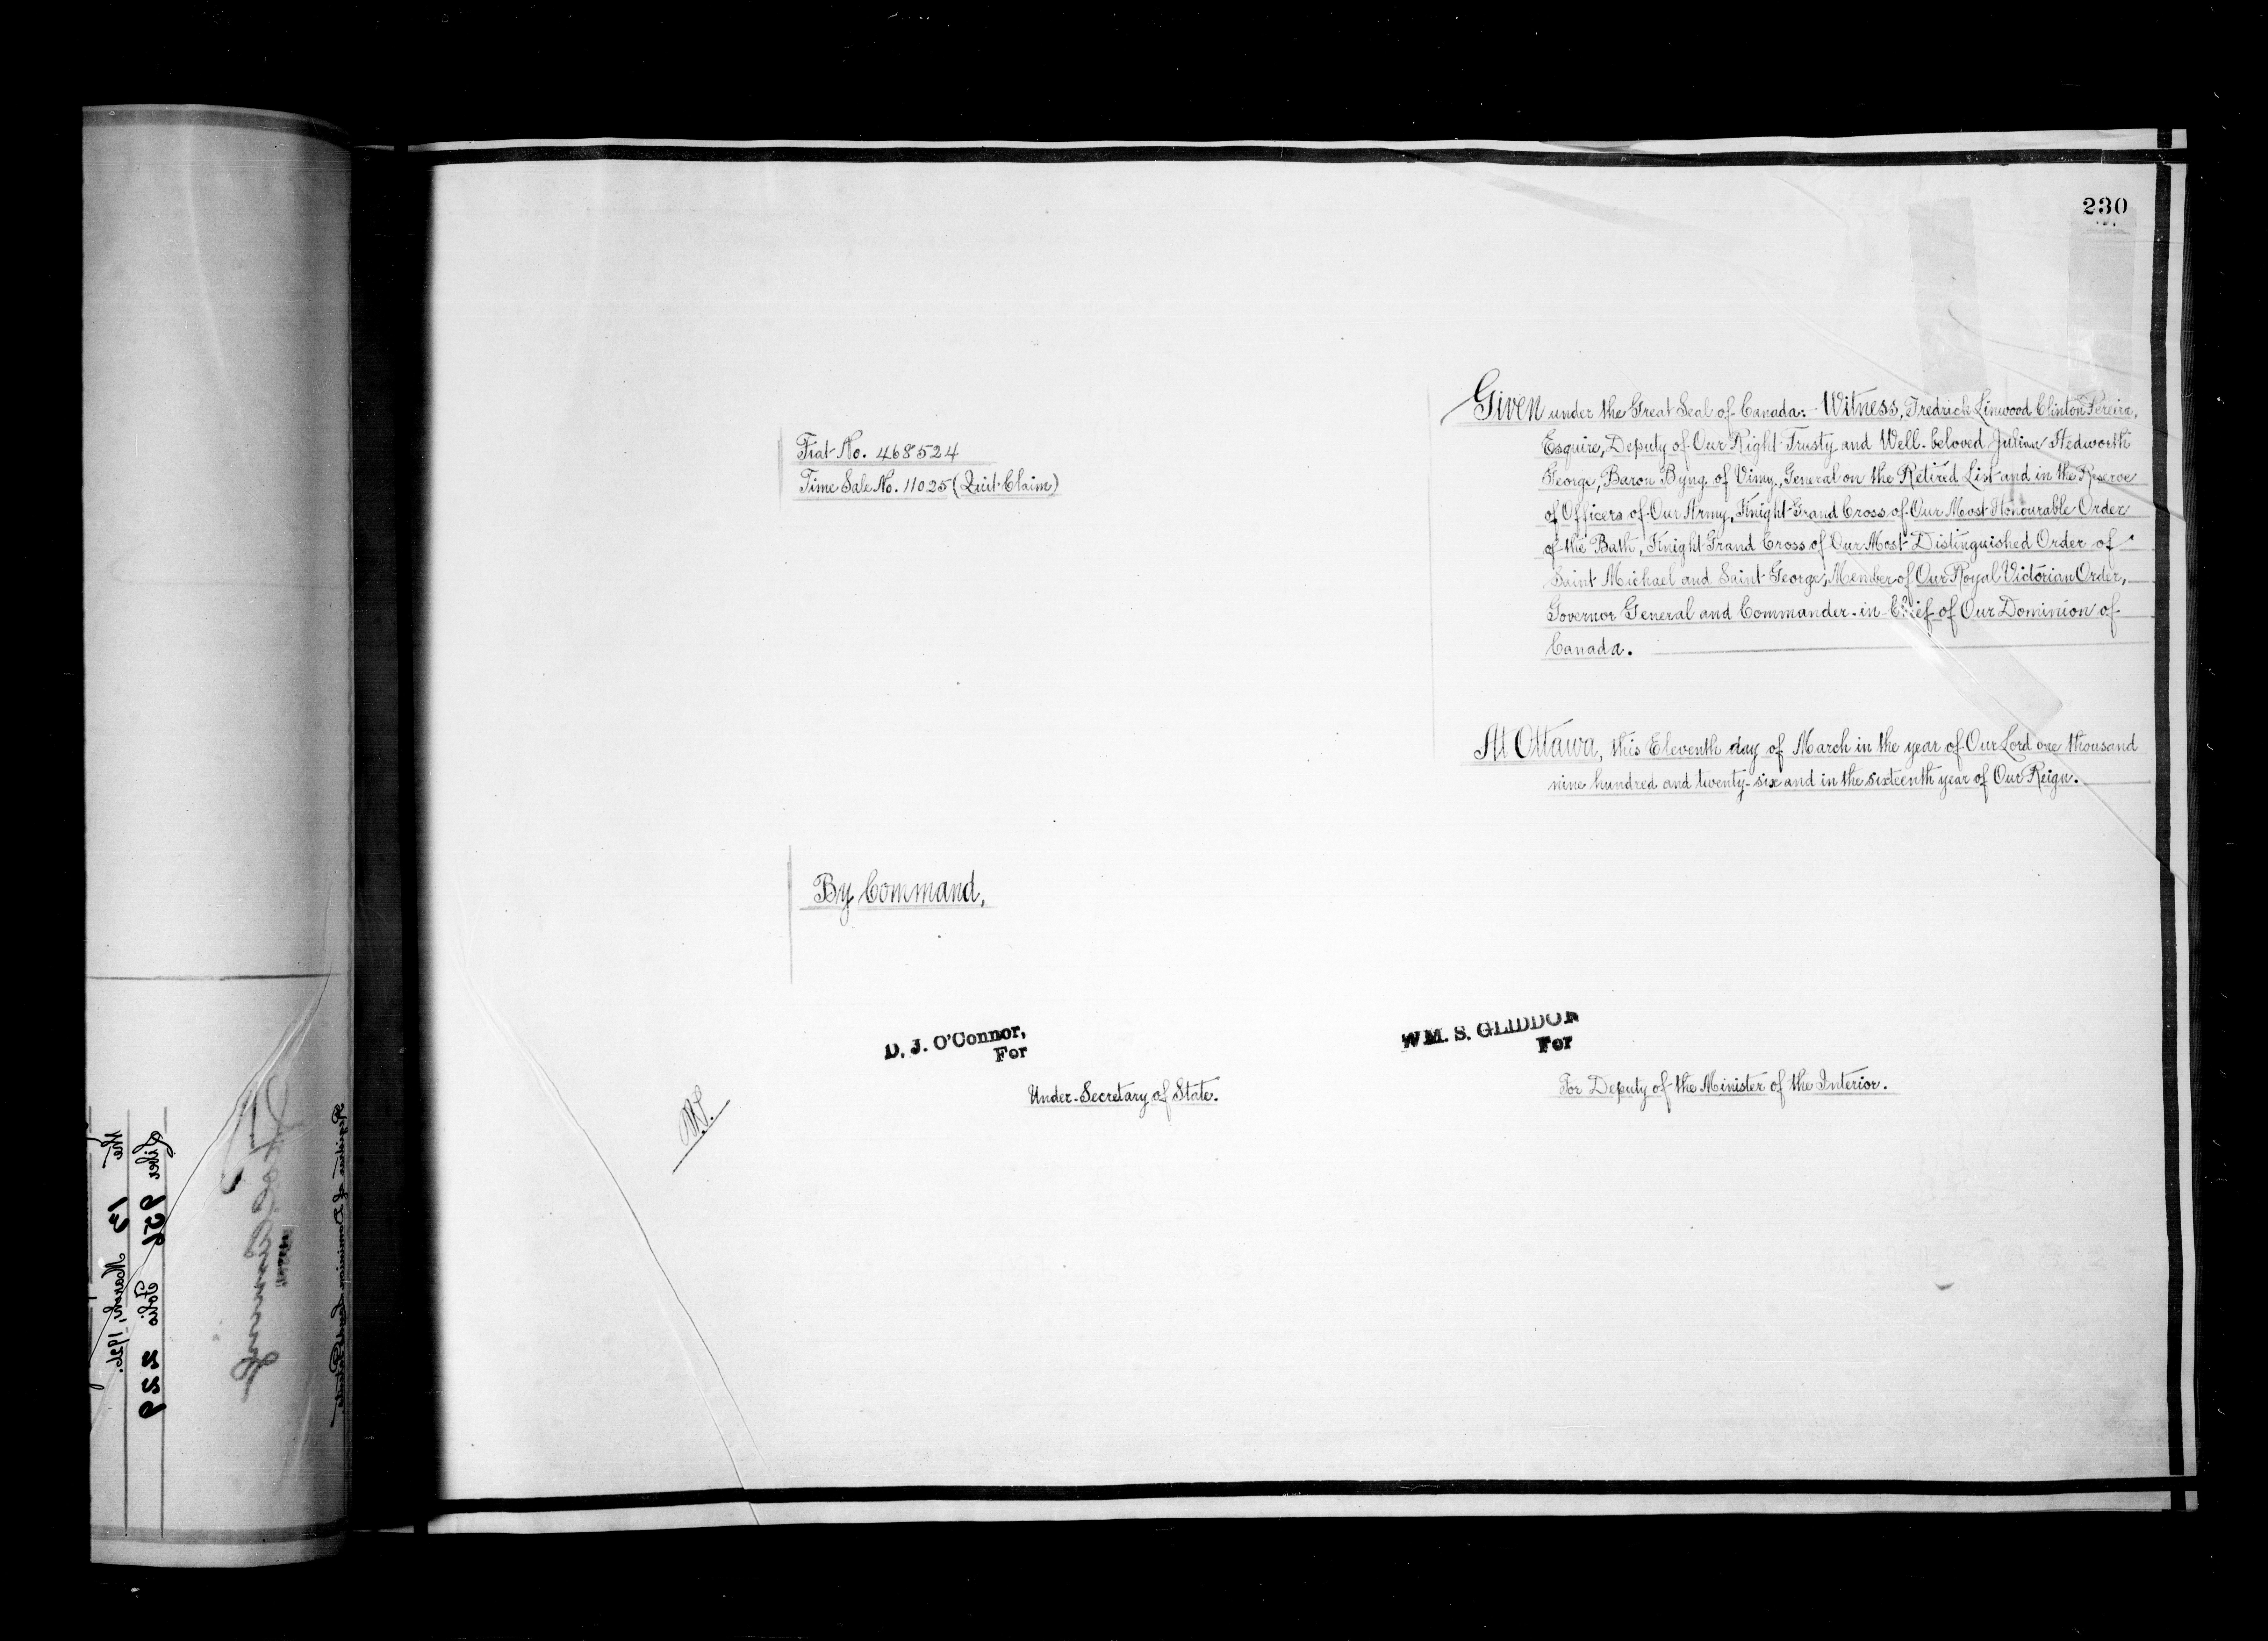 230
Given under the Great Seal of Canada:- Witness, Fredrick Linwood Clinton Pereira,
Esquire, Deputy of Our Right Trusty and Well-beloved Julian Hedworth
George, Baron Byng of Vimy, General on the Retired List and in the Reserve
of Officers of Our Army, Knight Grand Cross of Our Most Honourable Order
of the Bath, Knight Grand Cross of Our Most Distinguished Order of
Saint Michael and Saint George, Member of Our Royal Victorian Order,
Governor General and Commander-in-Chief of Our Dominion of
Canada.
Fiat No. 468524
Time Sale No. 11025 (Quit Claim)
At Ottawa, this Eleventh day of March in the year of Our Lord one thousand
nine hundred and twenty-six and in the sixteenth year of Our Reign.
By Command,
D. J. O'Connor,
For
Under-Secretary of State.
WM. S. GLIDDON
For
For Deputy of the Minister of the Interior.
Registrar of Dominion Lands Patents
Liber 956 Folio 229
the 15 March, 1926.